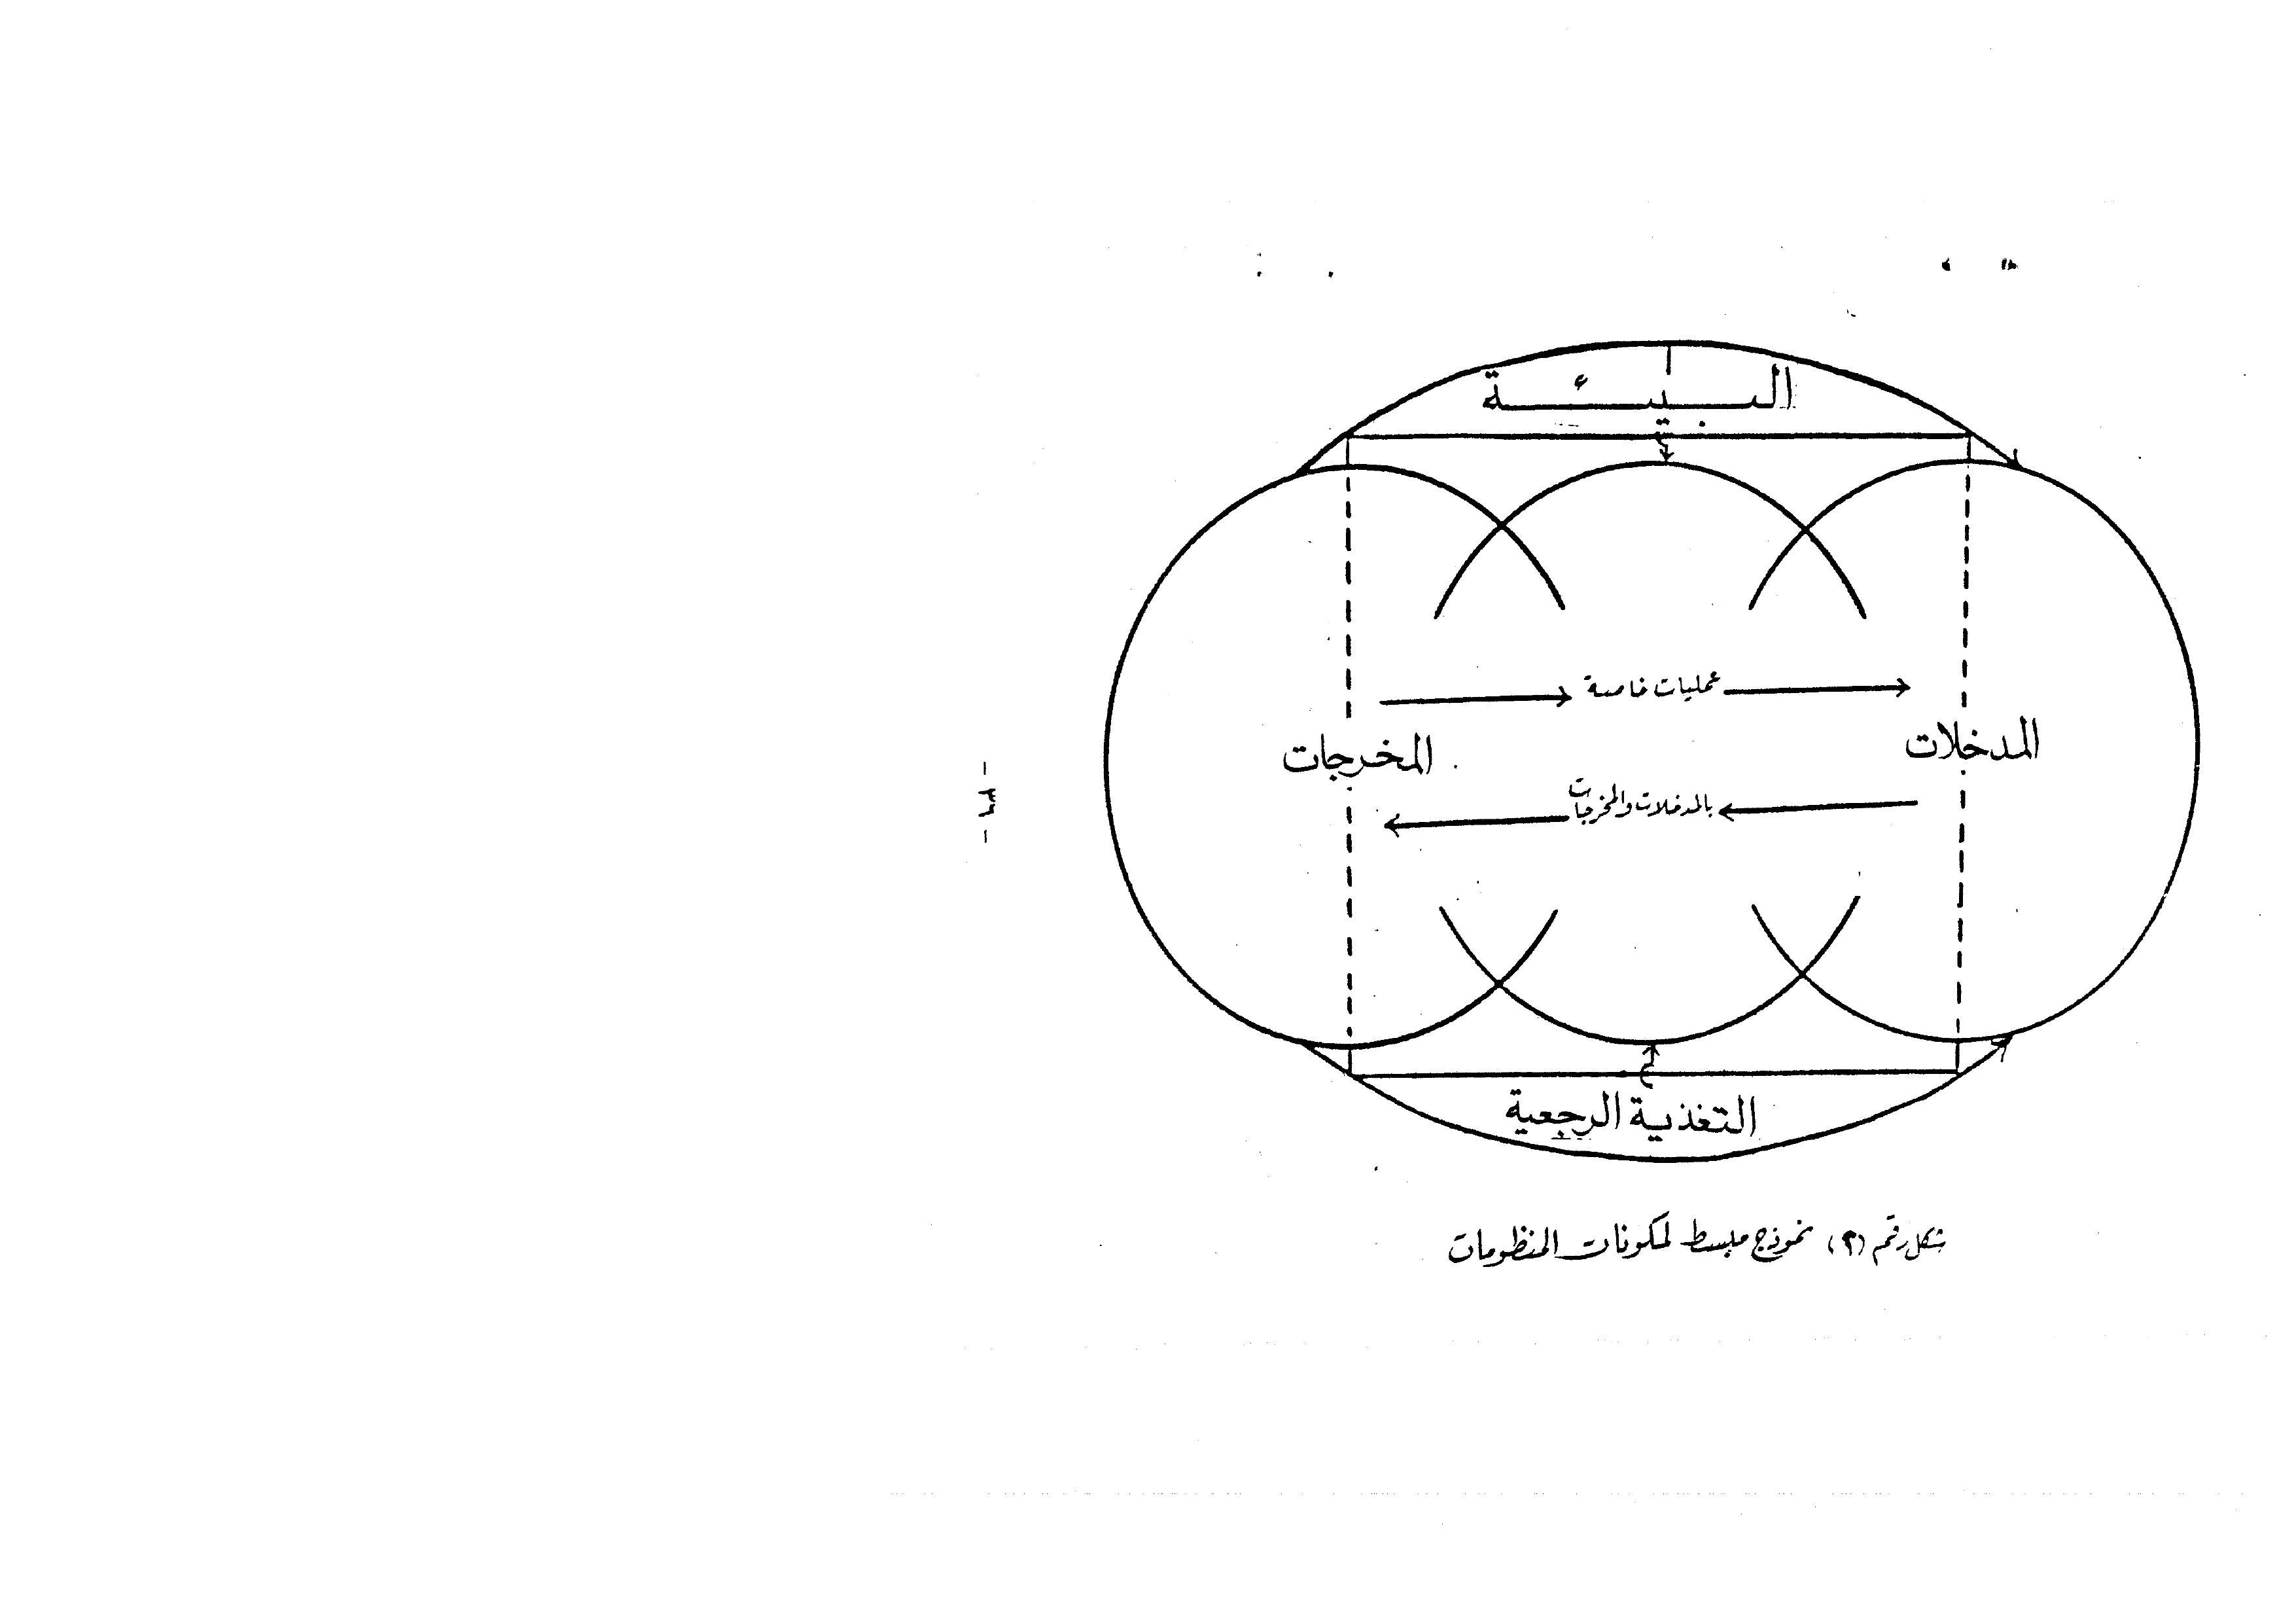 البيئة
عمليات خاصة
المدخلات
المخرجات
بالمدخلات والمخرجات
التغذية الرجعية
شكل رقم (٢) نموذج مبسط لمكونات المنظومات